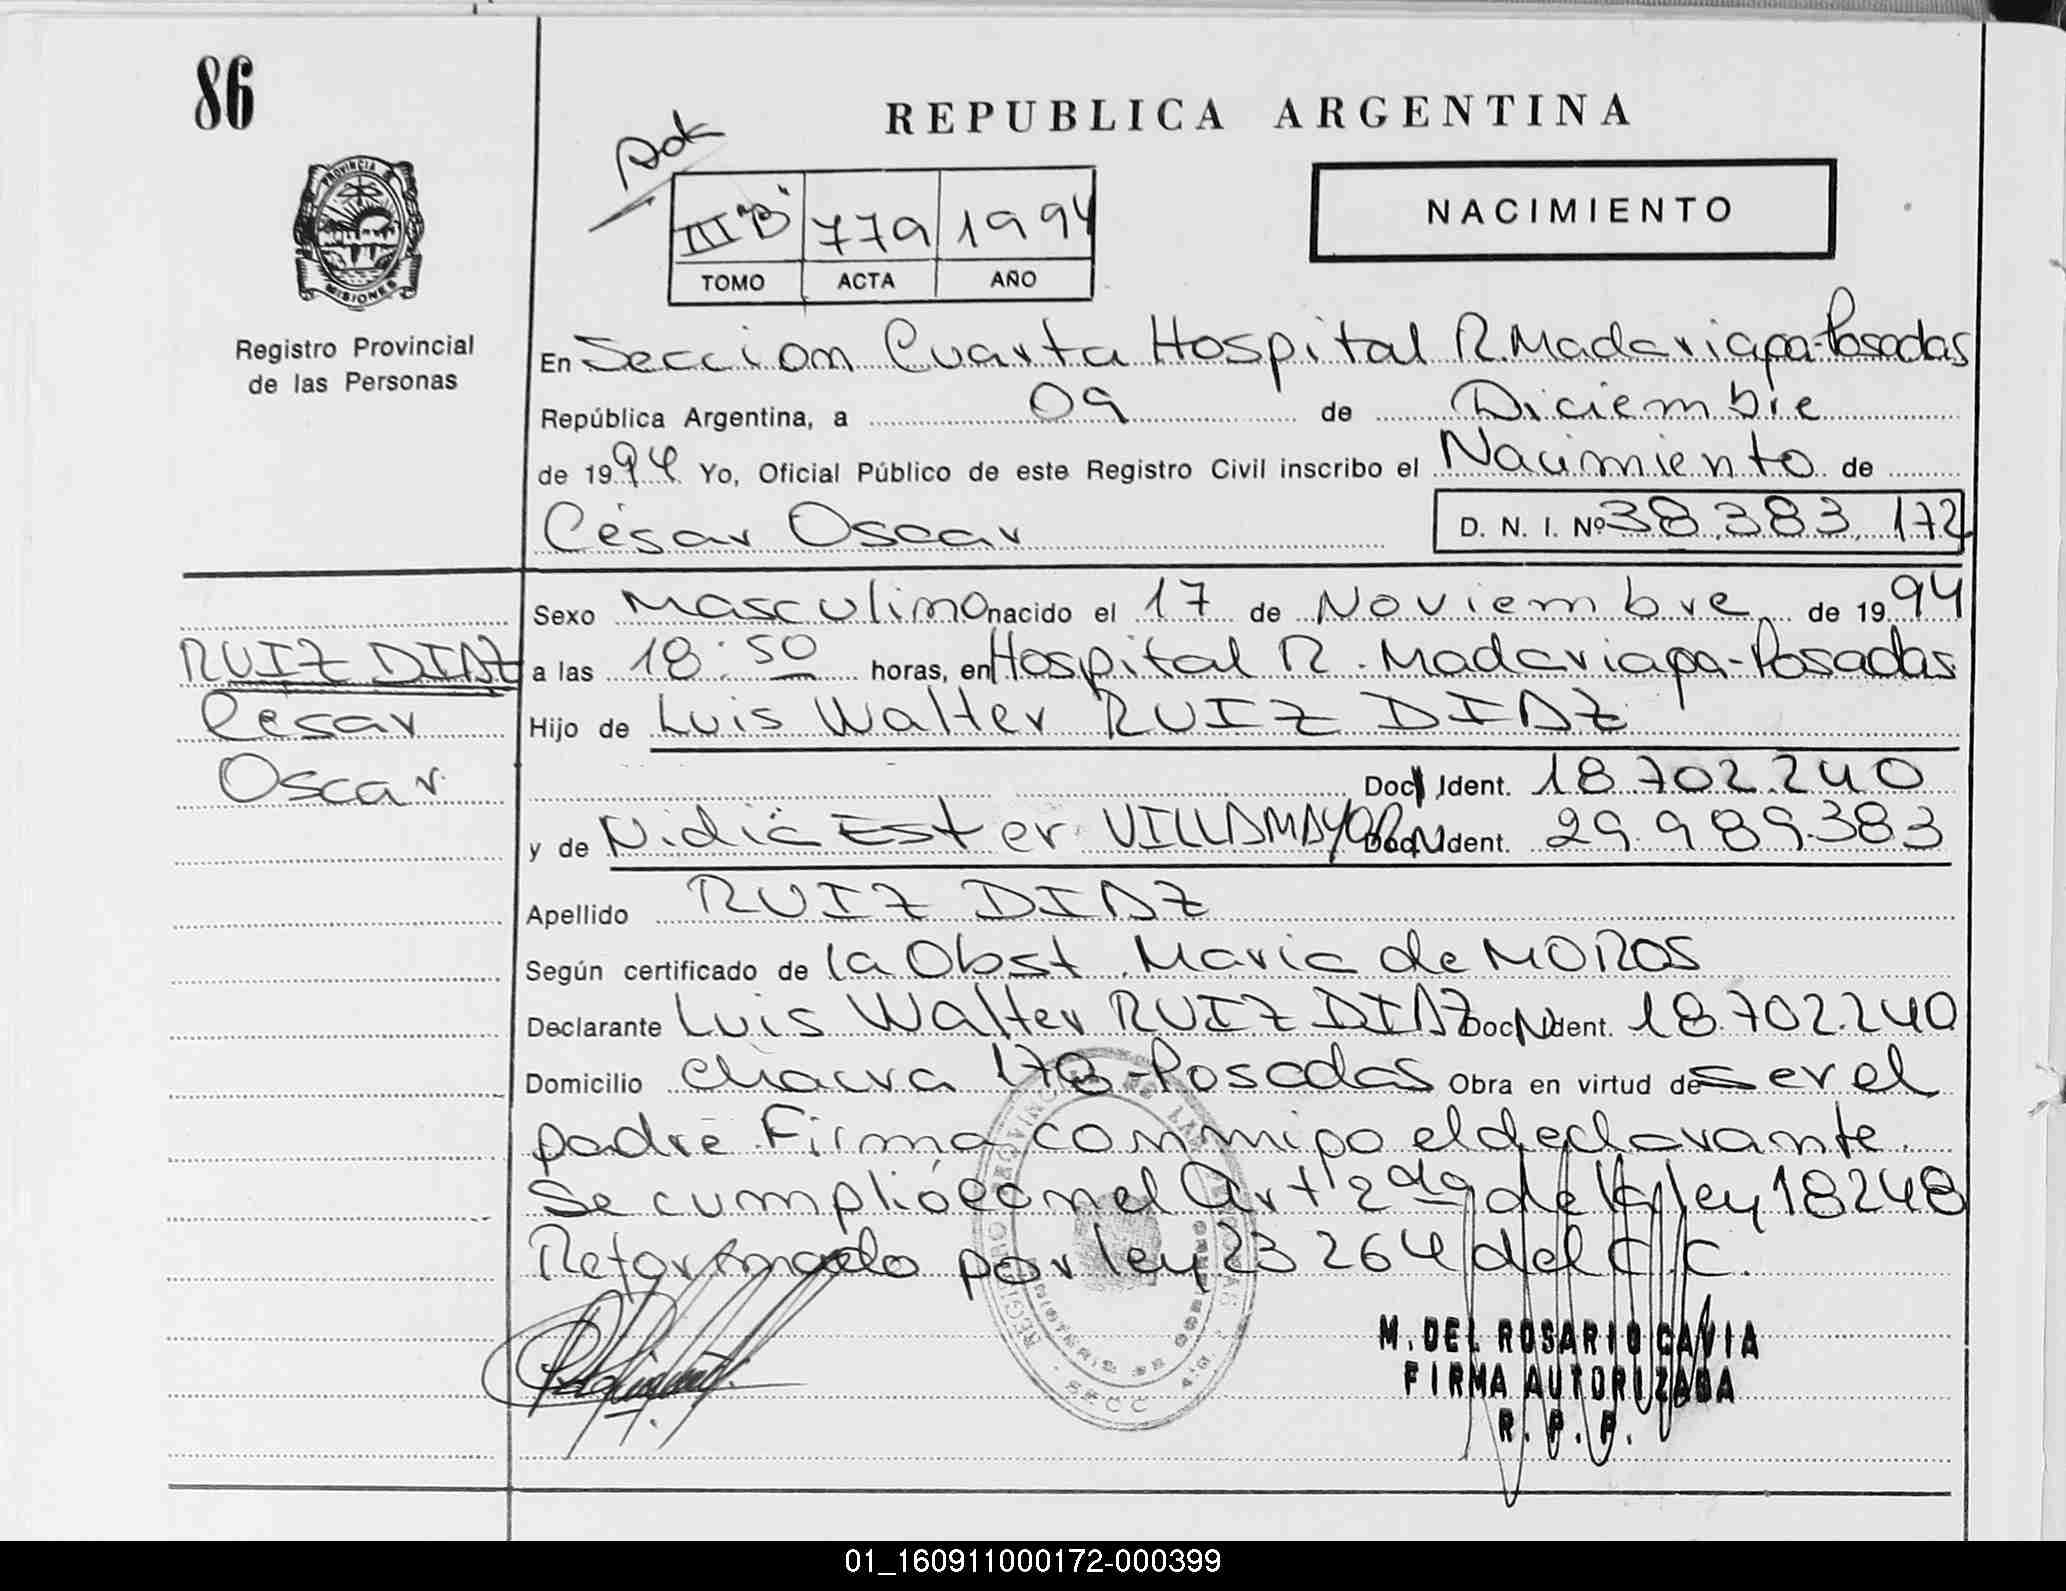 86
REPUBLICA ARGENTINA
PROVINCIA DE
MISIONES
III "B" 779 1994
TOMO ACTA AÑO
NACIMIENTO
Registro Provincial
de las Personas
En Seccion Cuarta Hospital R. Madariaga-Posadas
República Argentina, a 09 de Diciembre
de 1994 Yo, Oficial Público de este Registro Civil inscribo el Nacimiento de
César Oscar D. N. I. Nº 38.383.172
RUIZ DIAZ
César
Oscar
Sexo Masculino nacido el 17 de Noviembre de 1994
a las 18:50 horas, en Hospital R. Madariaga-Posadas
Hijo de Luis Walter RUIZ DIAZ
Doc. Ident. 18.702.240
y de Nidia Ester VILLAMAYOR Doc. Ident. 29.989.383
Apellido RUIZ DIAZ
Según certificado de la Obst. Maria de MOROS
Declarante Luis Walter RUIZ DIAZ Doc. Ident. 18.702.240
Domicilio chacra 178-Posadas Obra en virtud de ser el
padre. Firma conmigo el declarante.
Se cumplió con el Art 2do de la ley 18248
Reformado por ley 23264 del C.C.
M. DEL ROSARIO GAVIA
FIRMA AUTORIZADA
R. P. P.
01_160911000172-000399